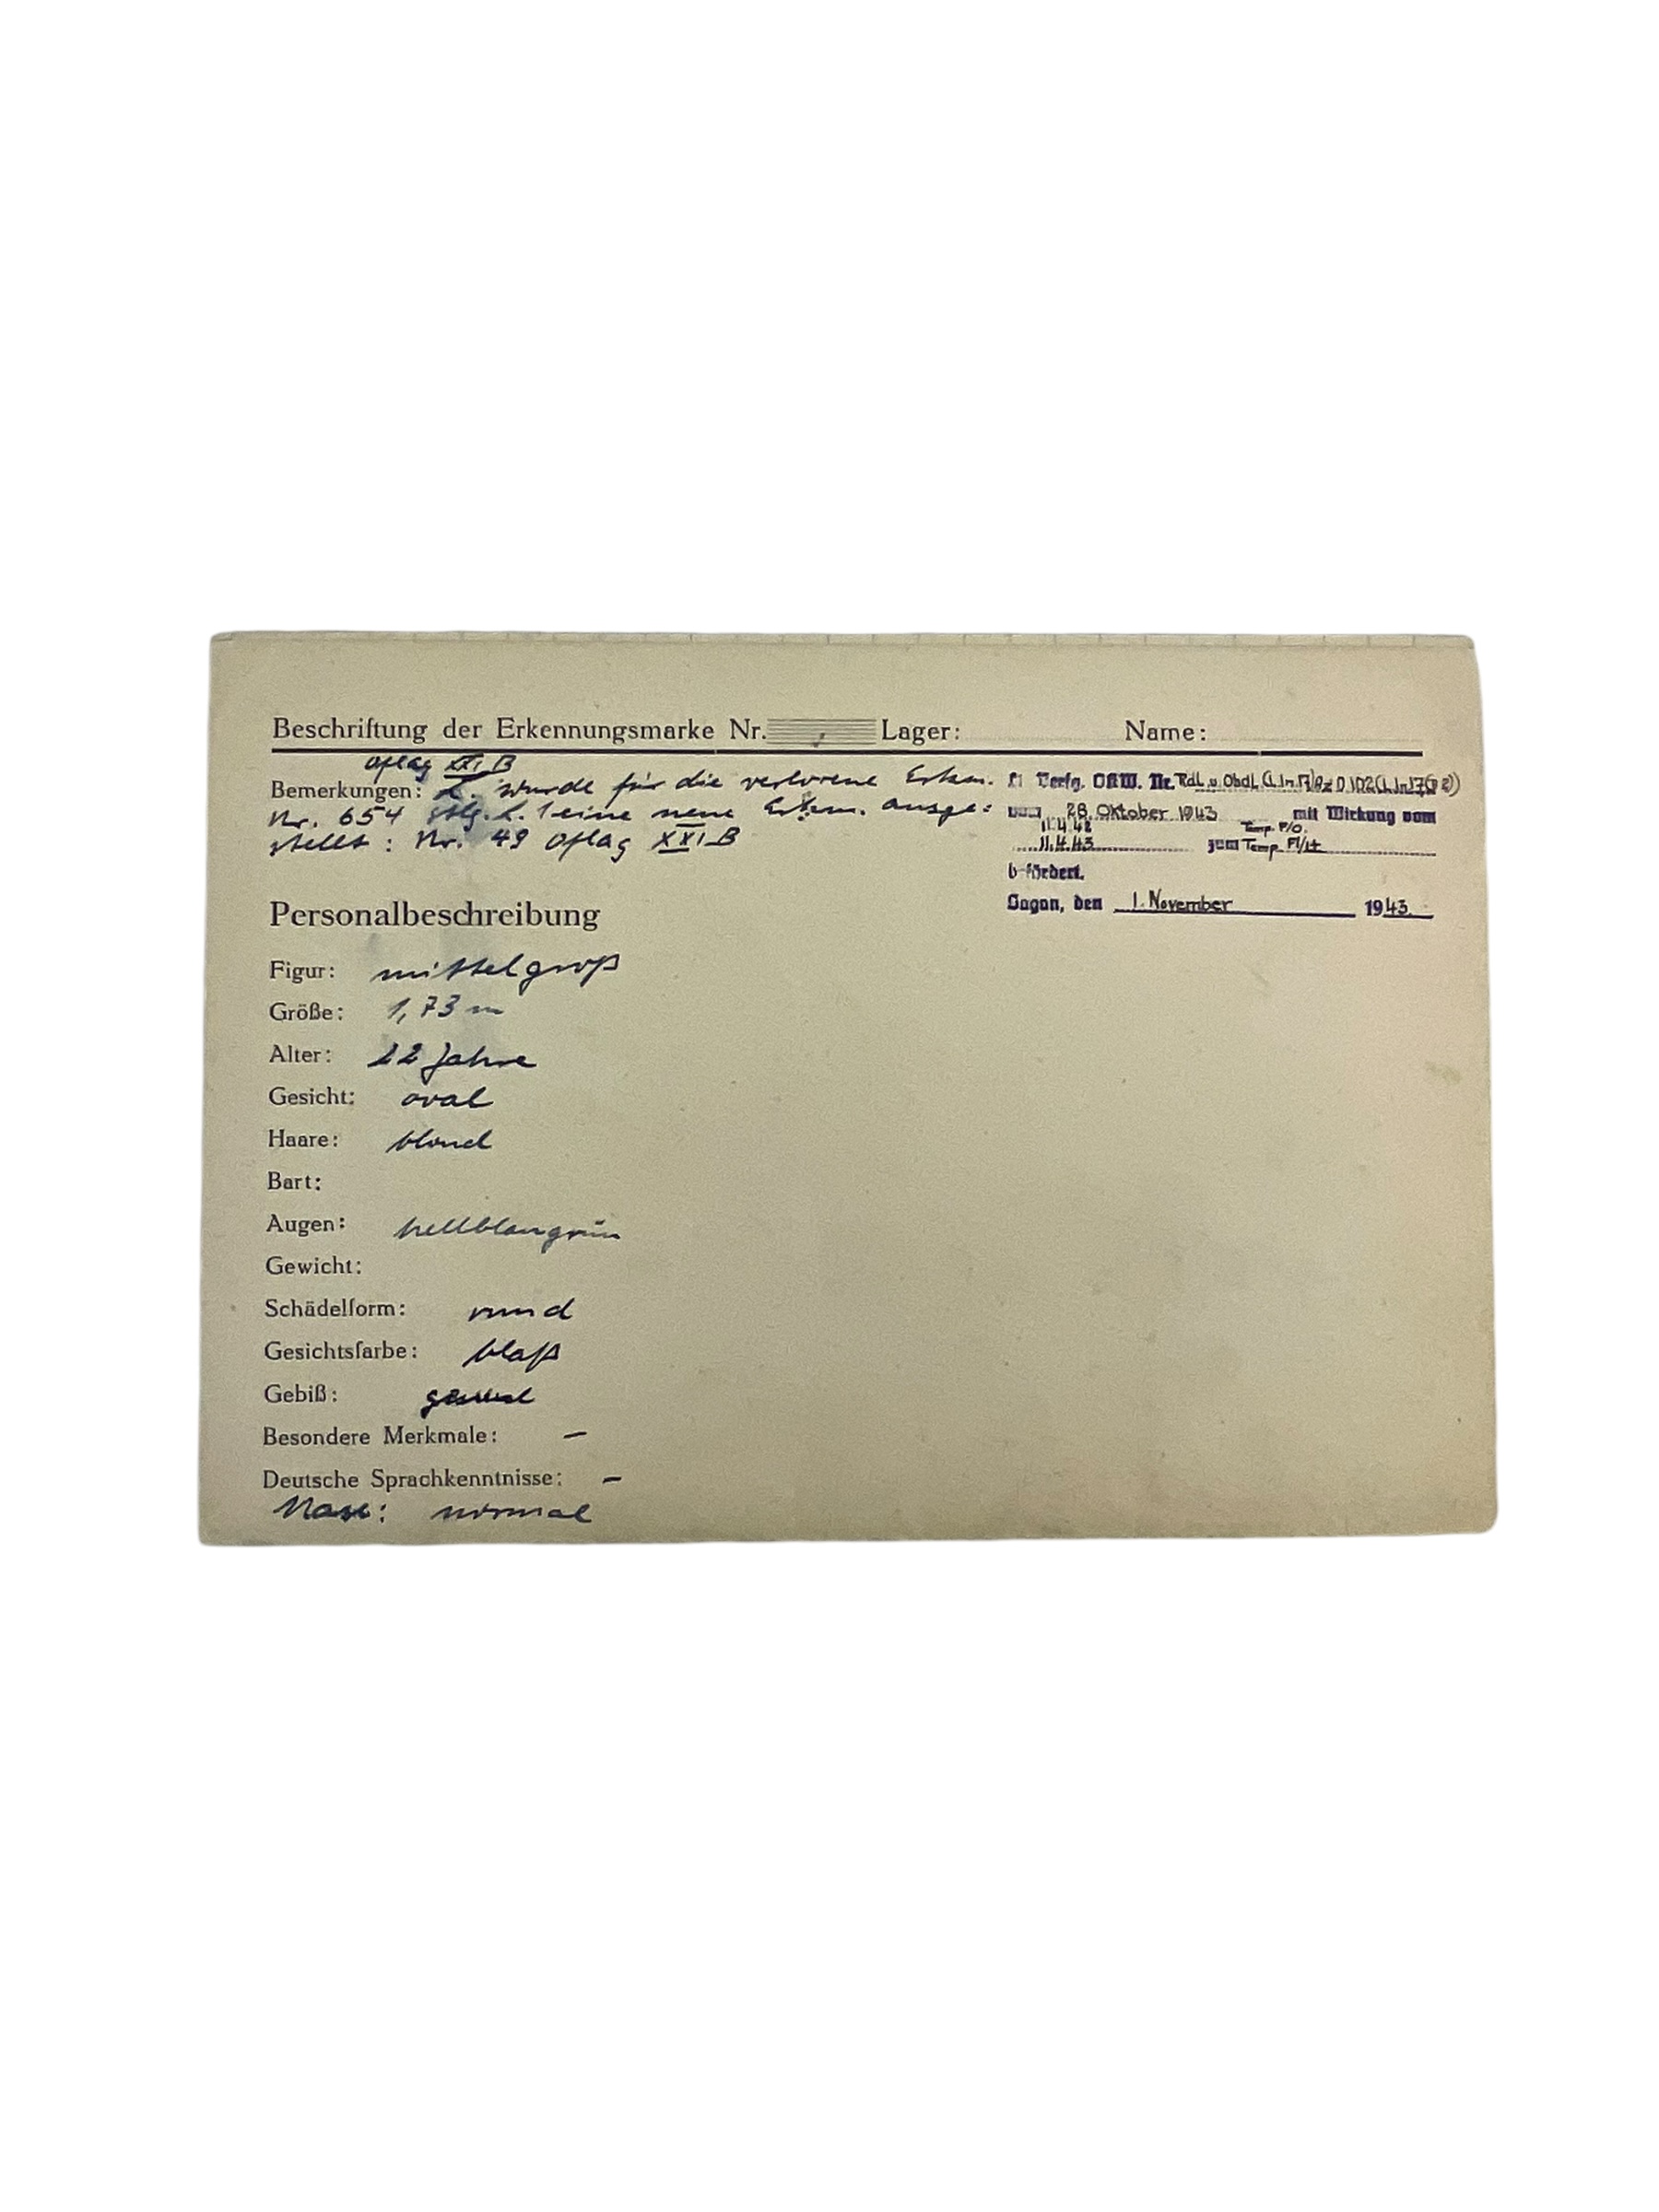 Beschriftung der Erkennungsmarke Nr. Lager: Name:
Oflag XXI B
Bemerkungen: L. wurde für die verlorene Erkm.
Nr. 654 eine neue Erkm. ausge=
stellt: Nr. 49 Oflag XXI B
Verfg. OKW. Nr. RdL u. ObdL
vom 28. Oktober 1943 mit Wirkung vom
11.4.42 Temp. P/O.
11.4.43 zum Temp. Fl/Lt
befördert.
Sagan, den 1. November 1943
Personalbeschreibung
Figur: mittelgroß
Größe: 1,73 m
Alter: 22 Jahre
Gesicht: oval
Haare: blond
Bart:
Augen: hellblaugrün
Gewicht:
Schädelform: rund
Gesichtsfarbe: blaß
Gebiß: gesund
Besondere Merkmale: –
Deutsche Sprachkenntnisse: –
Nase: normal